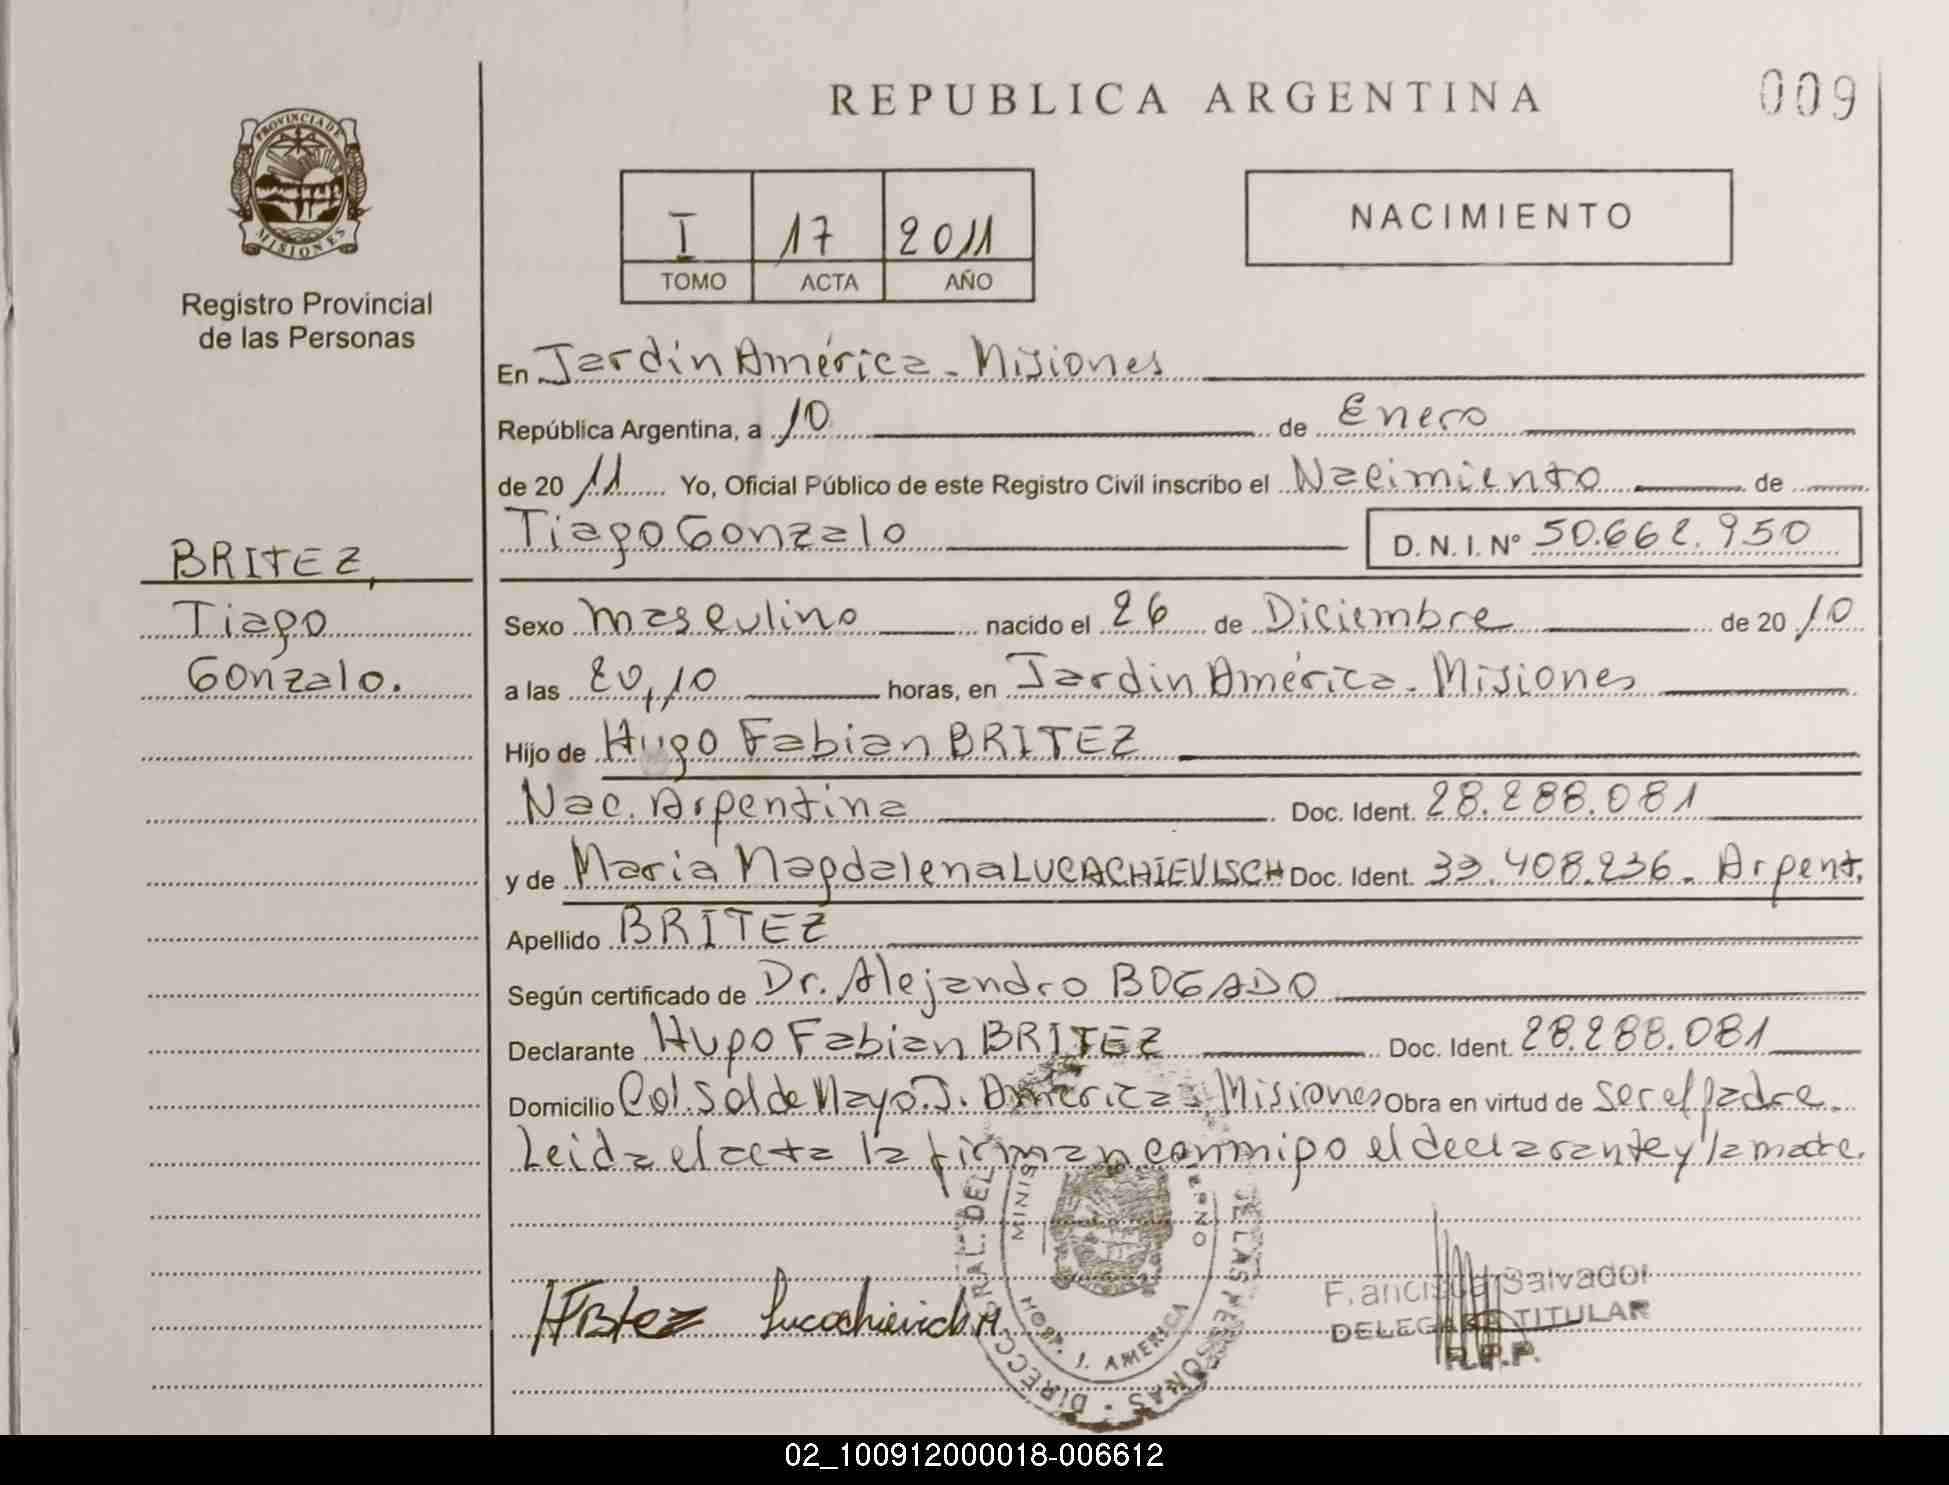 REPUBLICA ARGENTINA
009
PROVINCIA DE
MISIONES
Registro Provincial
de las Personas
I 17 2011
TOMO ACTA AÑO
NACIMIENTO
En Jardín América - Misiones
República Argentina, a 10 de Enero
de 20 11 Yo, Oficial Público de este Registro Civil inscribo el Nacimiento de
Tiago Gonzalo D. N. I. Nº 50.662.950
BRITEZ,
Tiago
Gonzalo.
Sexo masculino nacido el 26 de Diciembre de 20 10
a las 20,10 horas, en Jardín América - Misiones
Hijo de Hugo Fabian BRITEZ
Nac. Argentina Doc. Ident. 28.288.081
y de Maria Magdalena LUCACHIEVISCH Doc. Ident. 33.408.236 - Argent.
Apellido BRITEZ
Según certificado de Dr. Alejandro BOGADO
Declarante Hugo Fabian BRITEZ Doc. Ident. 28.288.081
Domicilio Col. Sol de Mayo. J. América - Misiones Obra en virtud de ser el padre.
Leida el acta la firman conmigo el declarante y la madre.
MINIS
HOSP. J. AMERICA
DE LAS PERSONAS
Salvador
DELEGADO TITULAR
R.P.P.
02_100912000018-006612